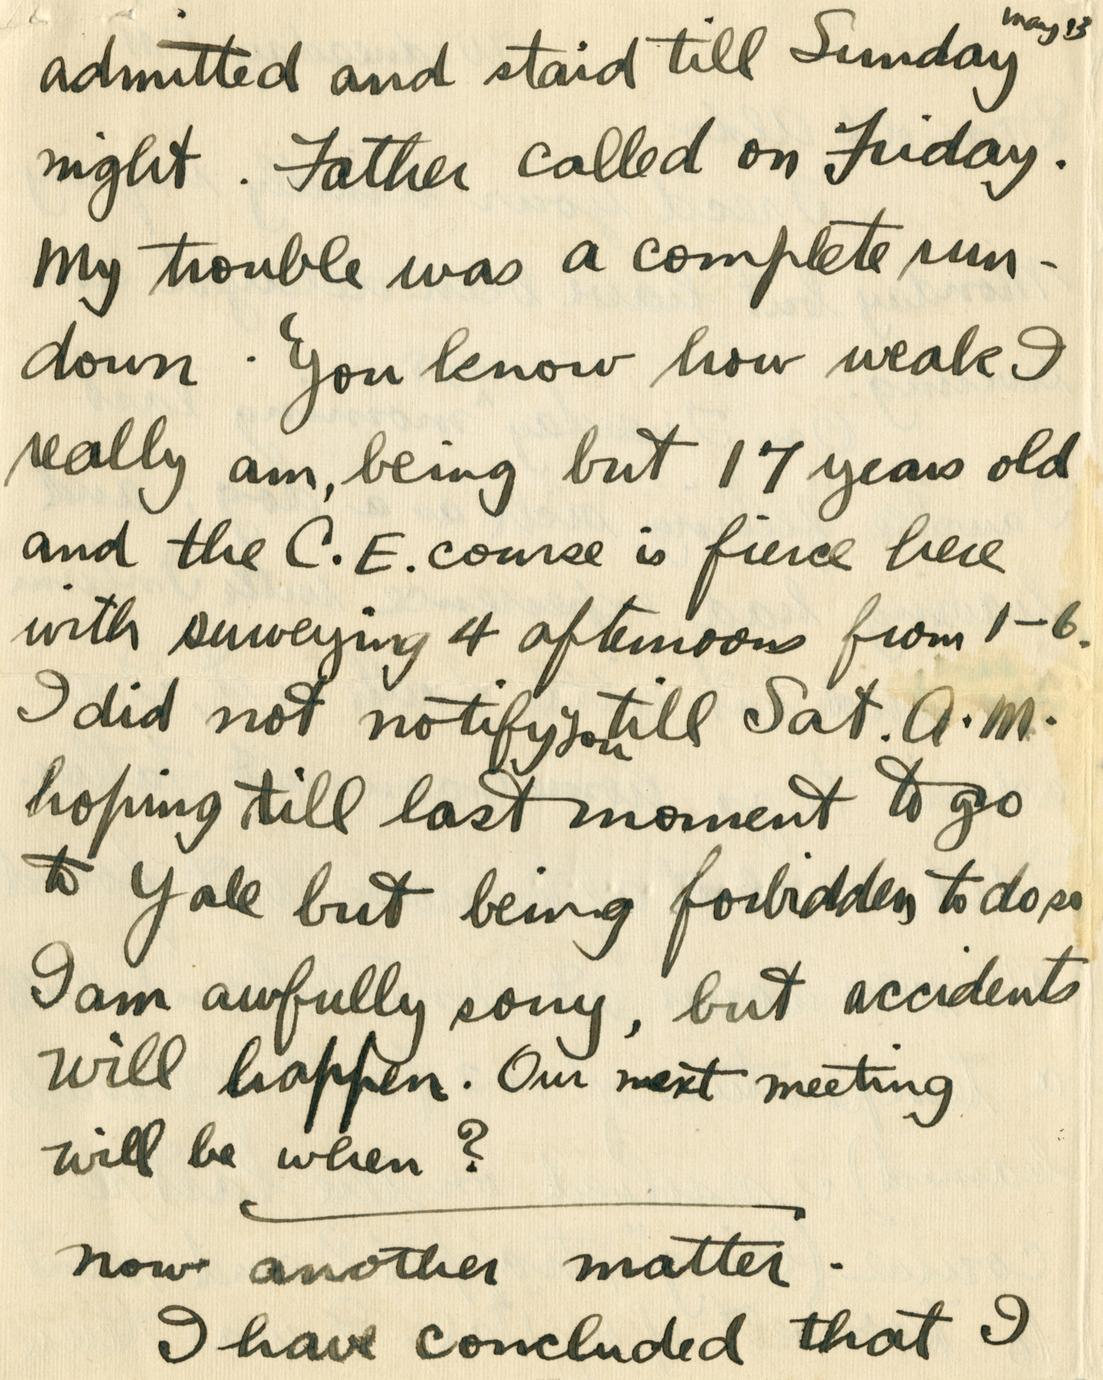 May 23
admitted and staid till Sunday
night. Father called on Friday.
My trouble was a complete run-
down. You know how weak I
really am, being but 17 years old
and the C. E. course is fierce here
with surveying 4 afternoons from 1-6.
I did not notify you till Sat. A.M.
hoping till last moment to go
to Yale but being forbidden to do so
I am awfully sorry, but accidents
will happen. Our next meeting
will be when?
Now another matter.
I have concluded that I